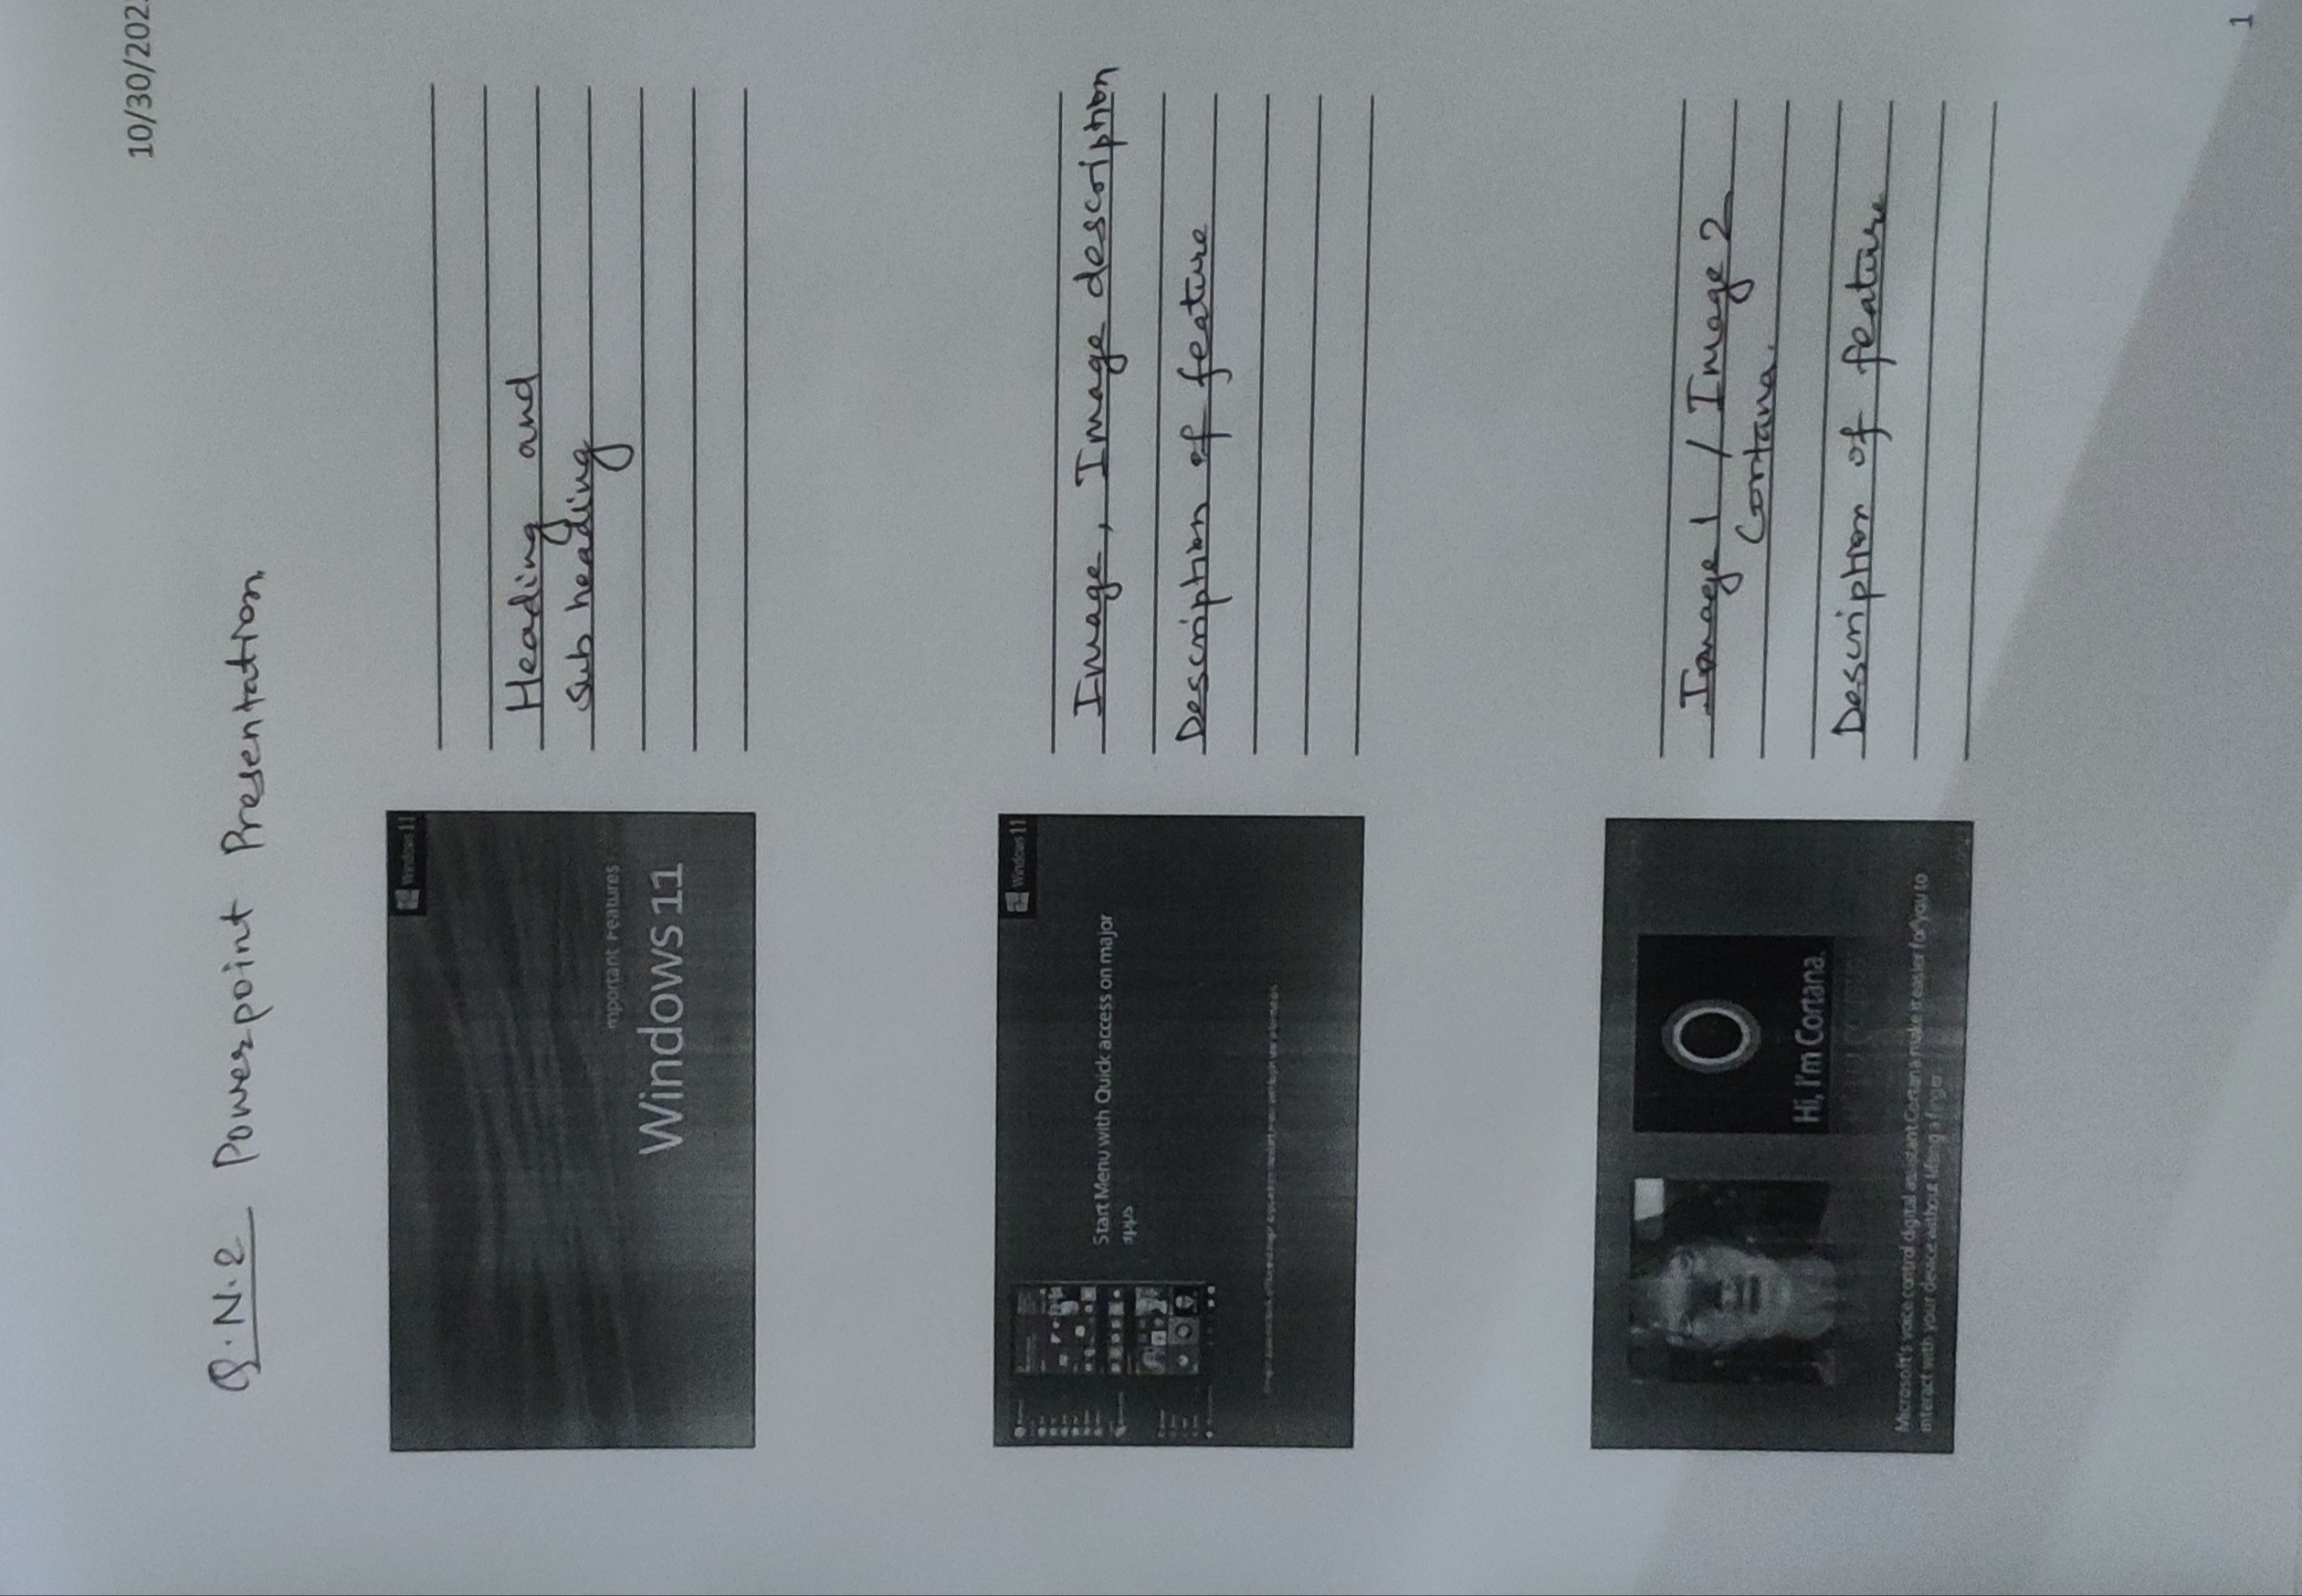 10/30/202
Q.N.2 Powerpoint Presentation
Windows 11
mportant Features
Windows 11
Heading and
sub heading
Windows 11
Start Menu with Quick access on major
apps
Image, Image description
Description of feature
Hi, I'm Cortana.
Microsoft's voice control digital assistant Cortana make it easier for you to
interact with your device without lifting a finger.
Image 1 / Image 2
Cortana.
Description of feature
1